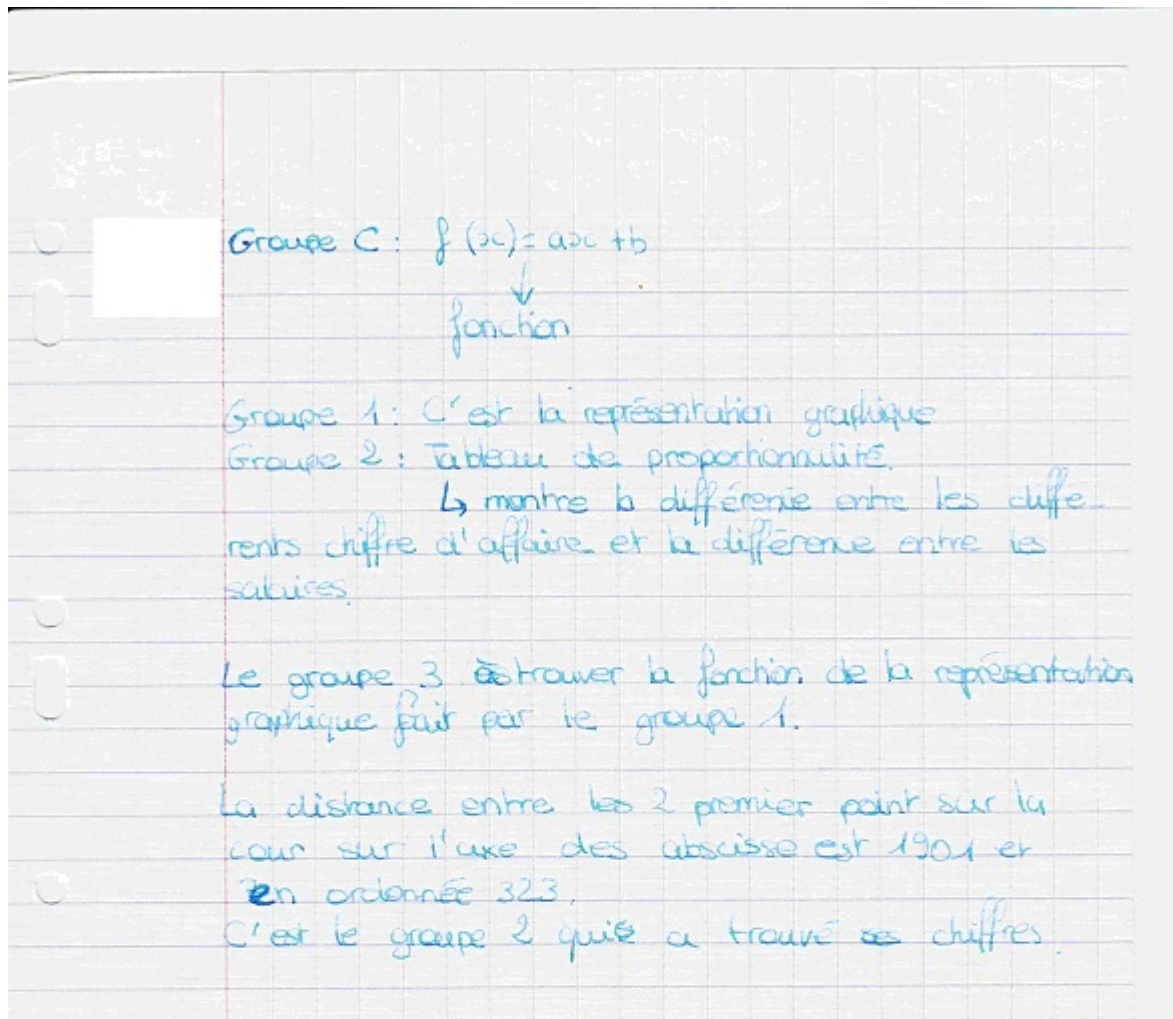 Groupe C : f (x) = ax + b
↓
fonction
Groupe 1 : C'est la représentation graphique
Groupe 2 : Tableau de proportionnalité.
↳ montre la différence entre les diffé
rents chiffre d'affaire et la différence entre les
salaires.
Le groupe 3 trouver la fonction de la représentation
graphique fait par le groupe 1.
La distance entre les 2 premier point sur la
cour sur l'axe des abscisse est 1901 et
en ordonnée 323.
C'est le groupe 2 qui a trouvé chiffres.